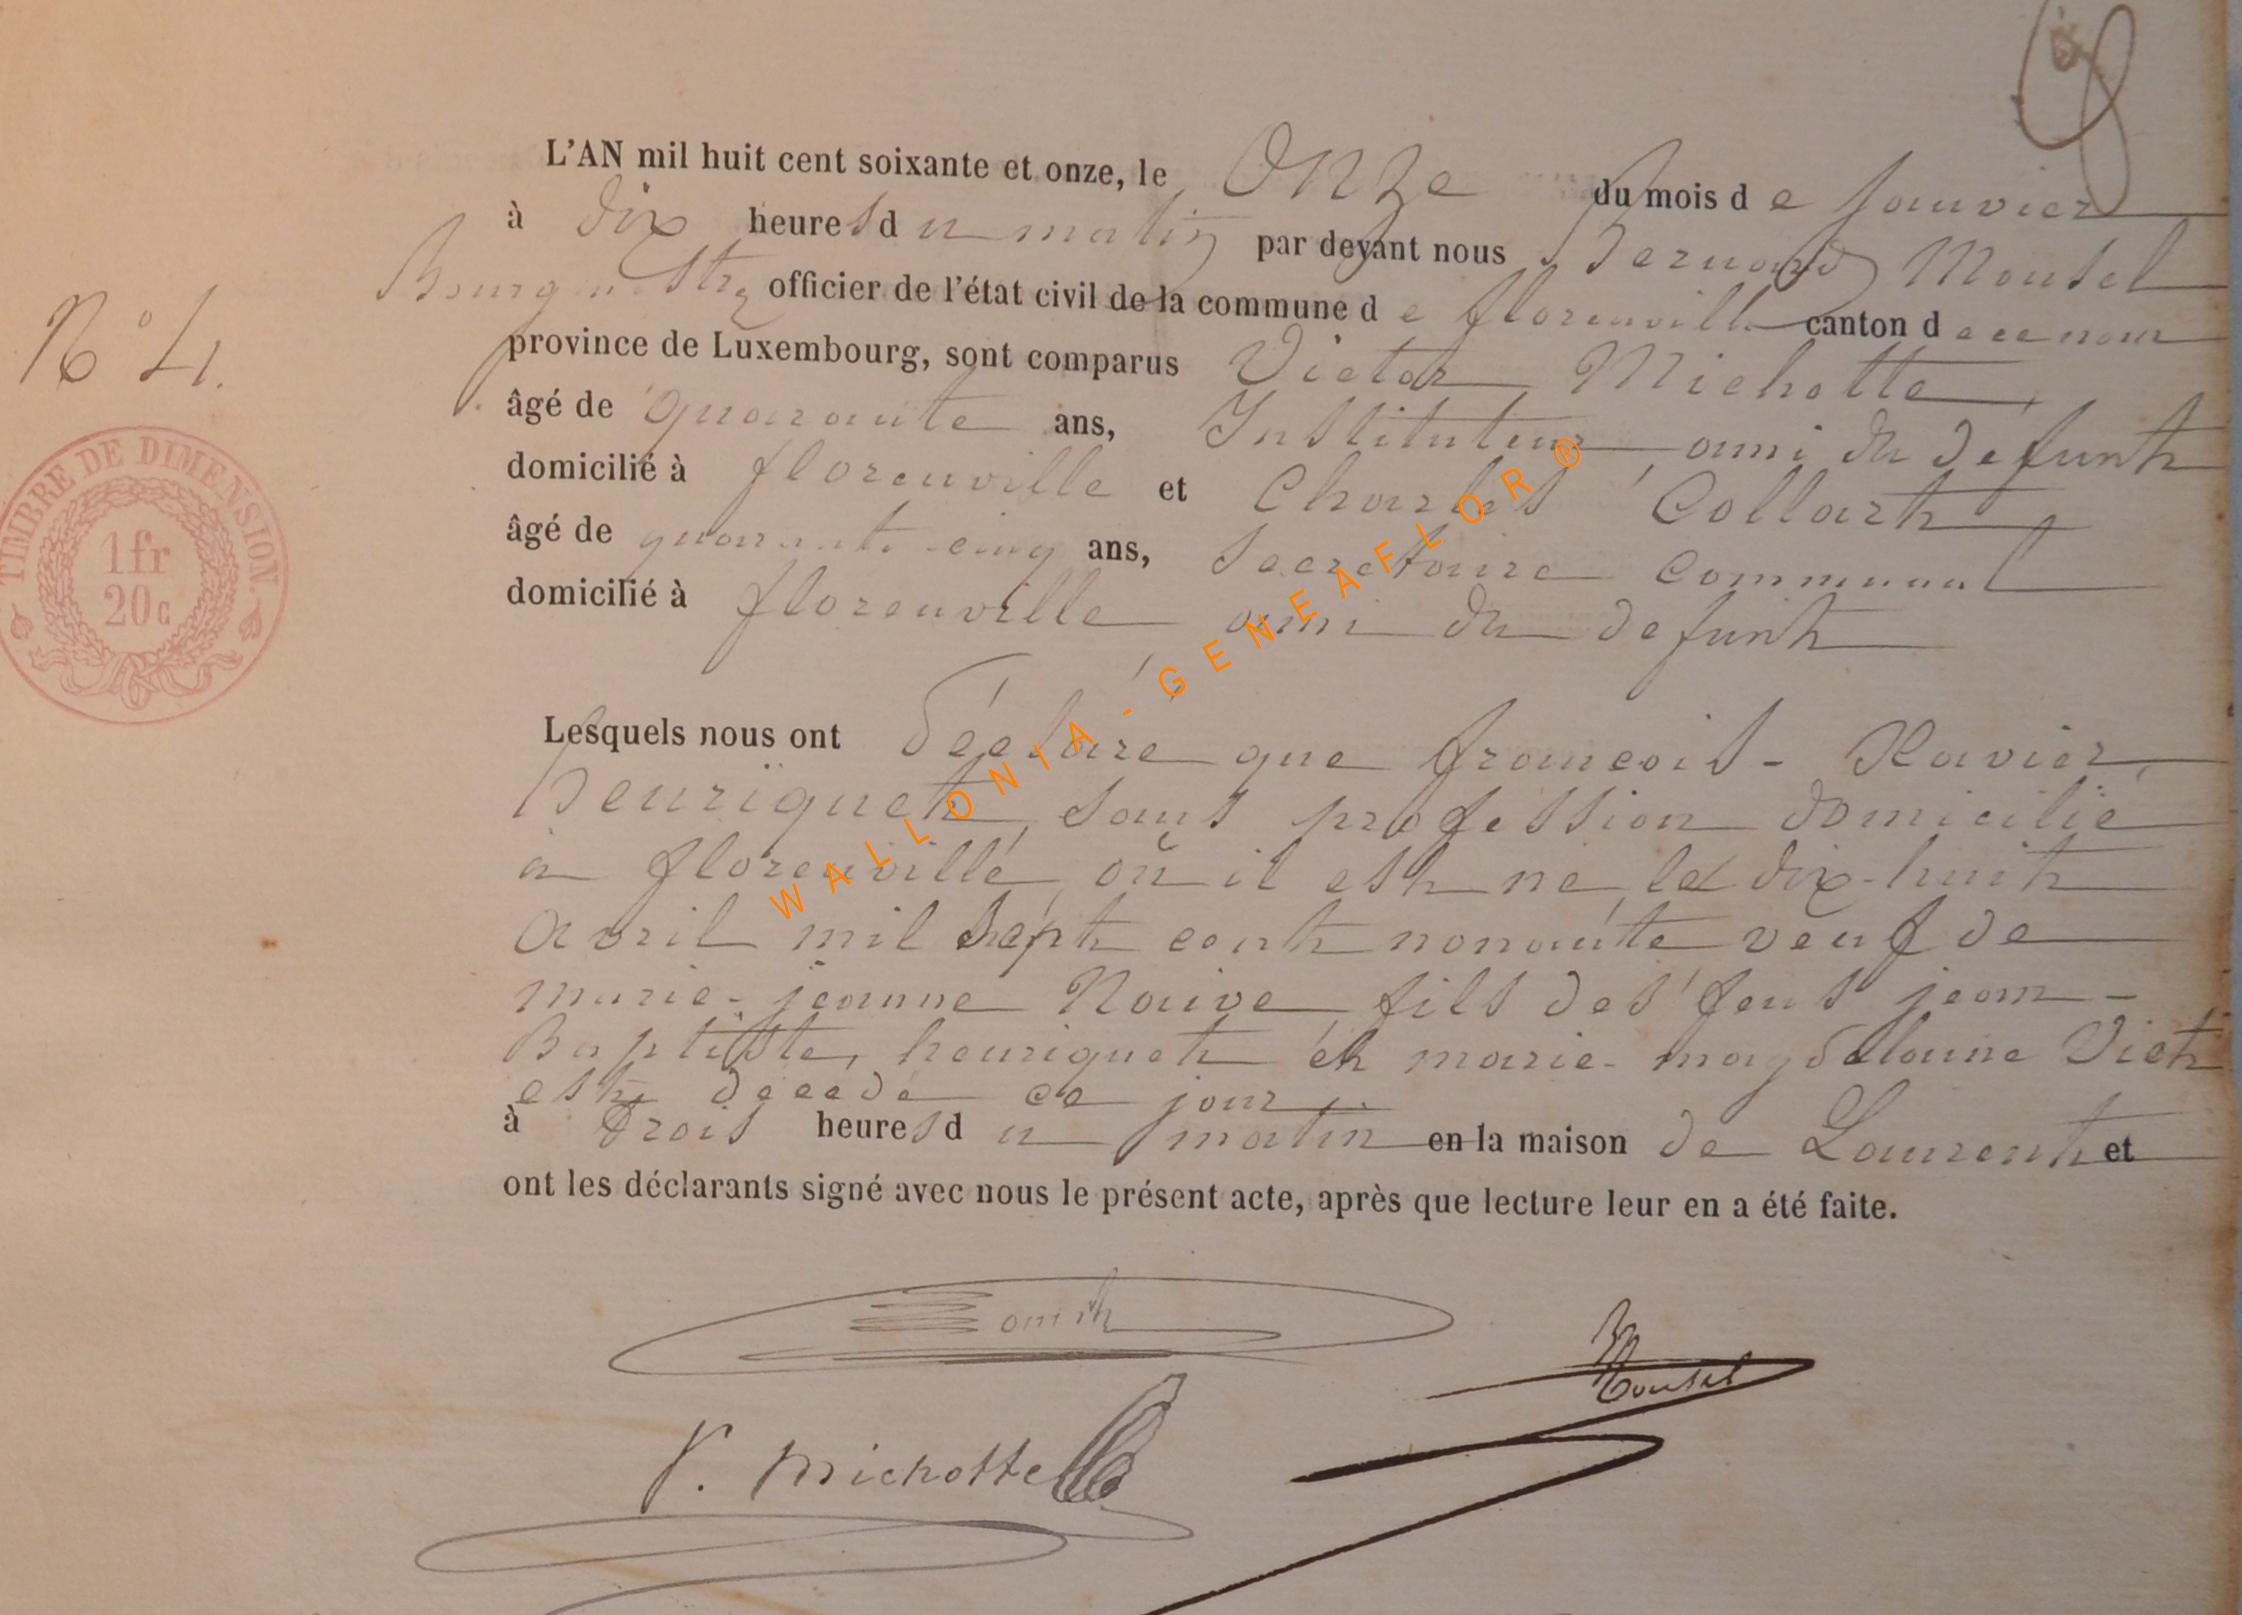 L'AN mil huit cent soixante et onze, le Onze du mois de Janvier
à dix heures du matin par devant nous Bernard Mousel
Bourgmestre officier de l'état civil de la commune de florenville canton de ce nom
province de Luxembourg, sont comparus Victor Michotte,
N° 4.
âgé de quarante ans, Instituteur, ami du defunt
domicilié à florenville et Charles Collart
âgé de quarante cinq ans, Secretaire Communal
domicilié à florenville, ami du defunt
TIMBRE DE DIMENSION.
1fr
20c
Lesquels nous ont déclaré que françois-Xavier
henriquet, sans profession domicilié
à florenville, où il est né le dix-huit
avril mil sept cent nonante veuf de
marie-jeanne Naive fils des feus jean-
Baptiste, henriquet et marie-magdelaine Viot
est décédé ce jour
à trois heures du matin en la maison de Laurent et
ont les déclarants signé avec nous le présent acte, après que lecture leur en a été faite.
Mousel
V. Michotte
WALLONIA-GENEAFLOR®